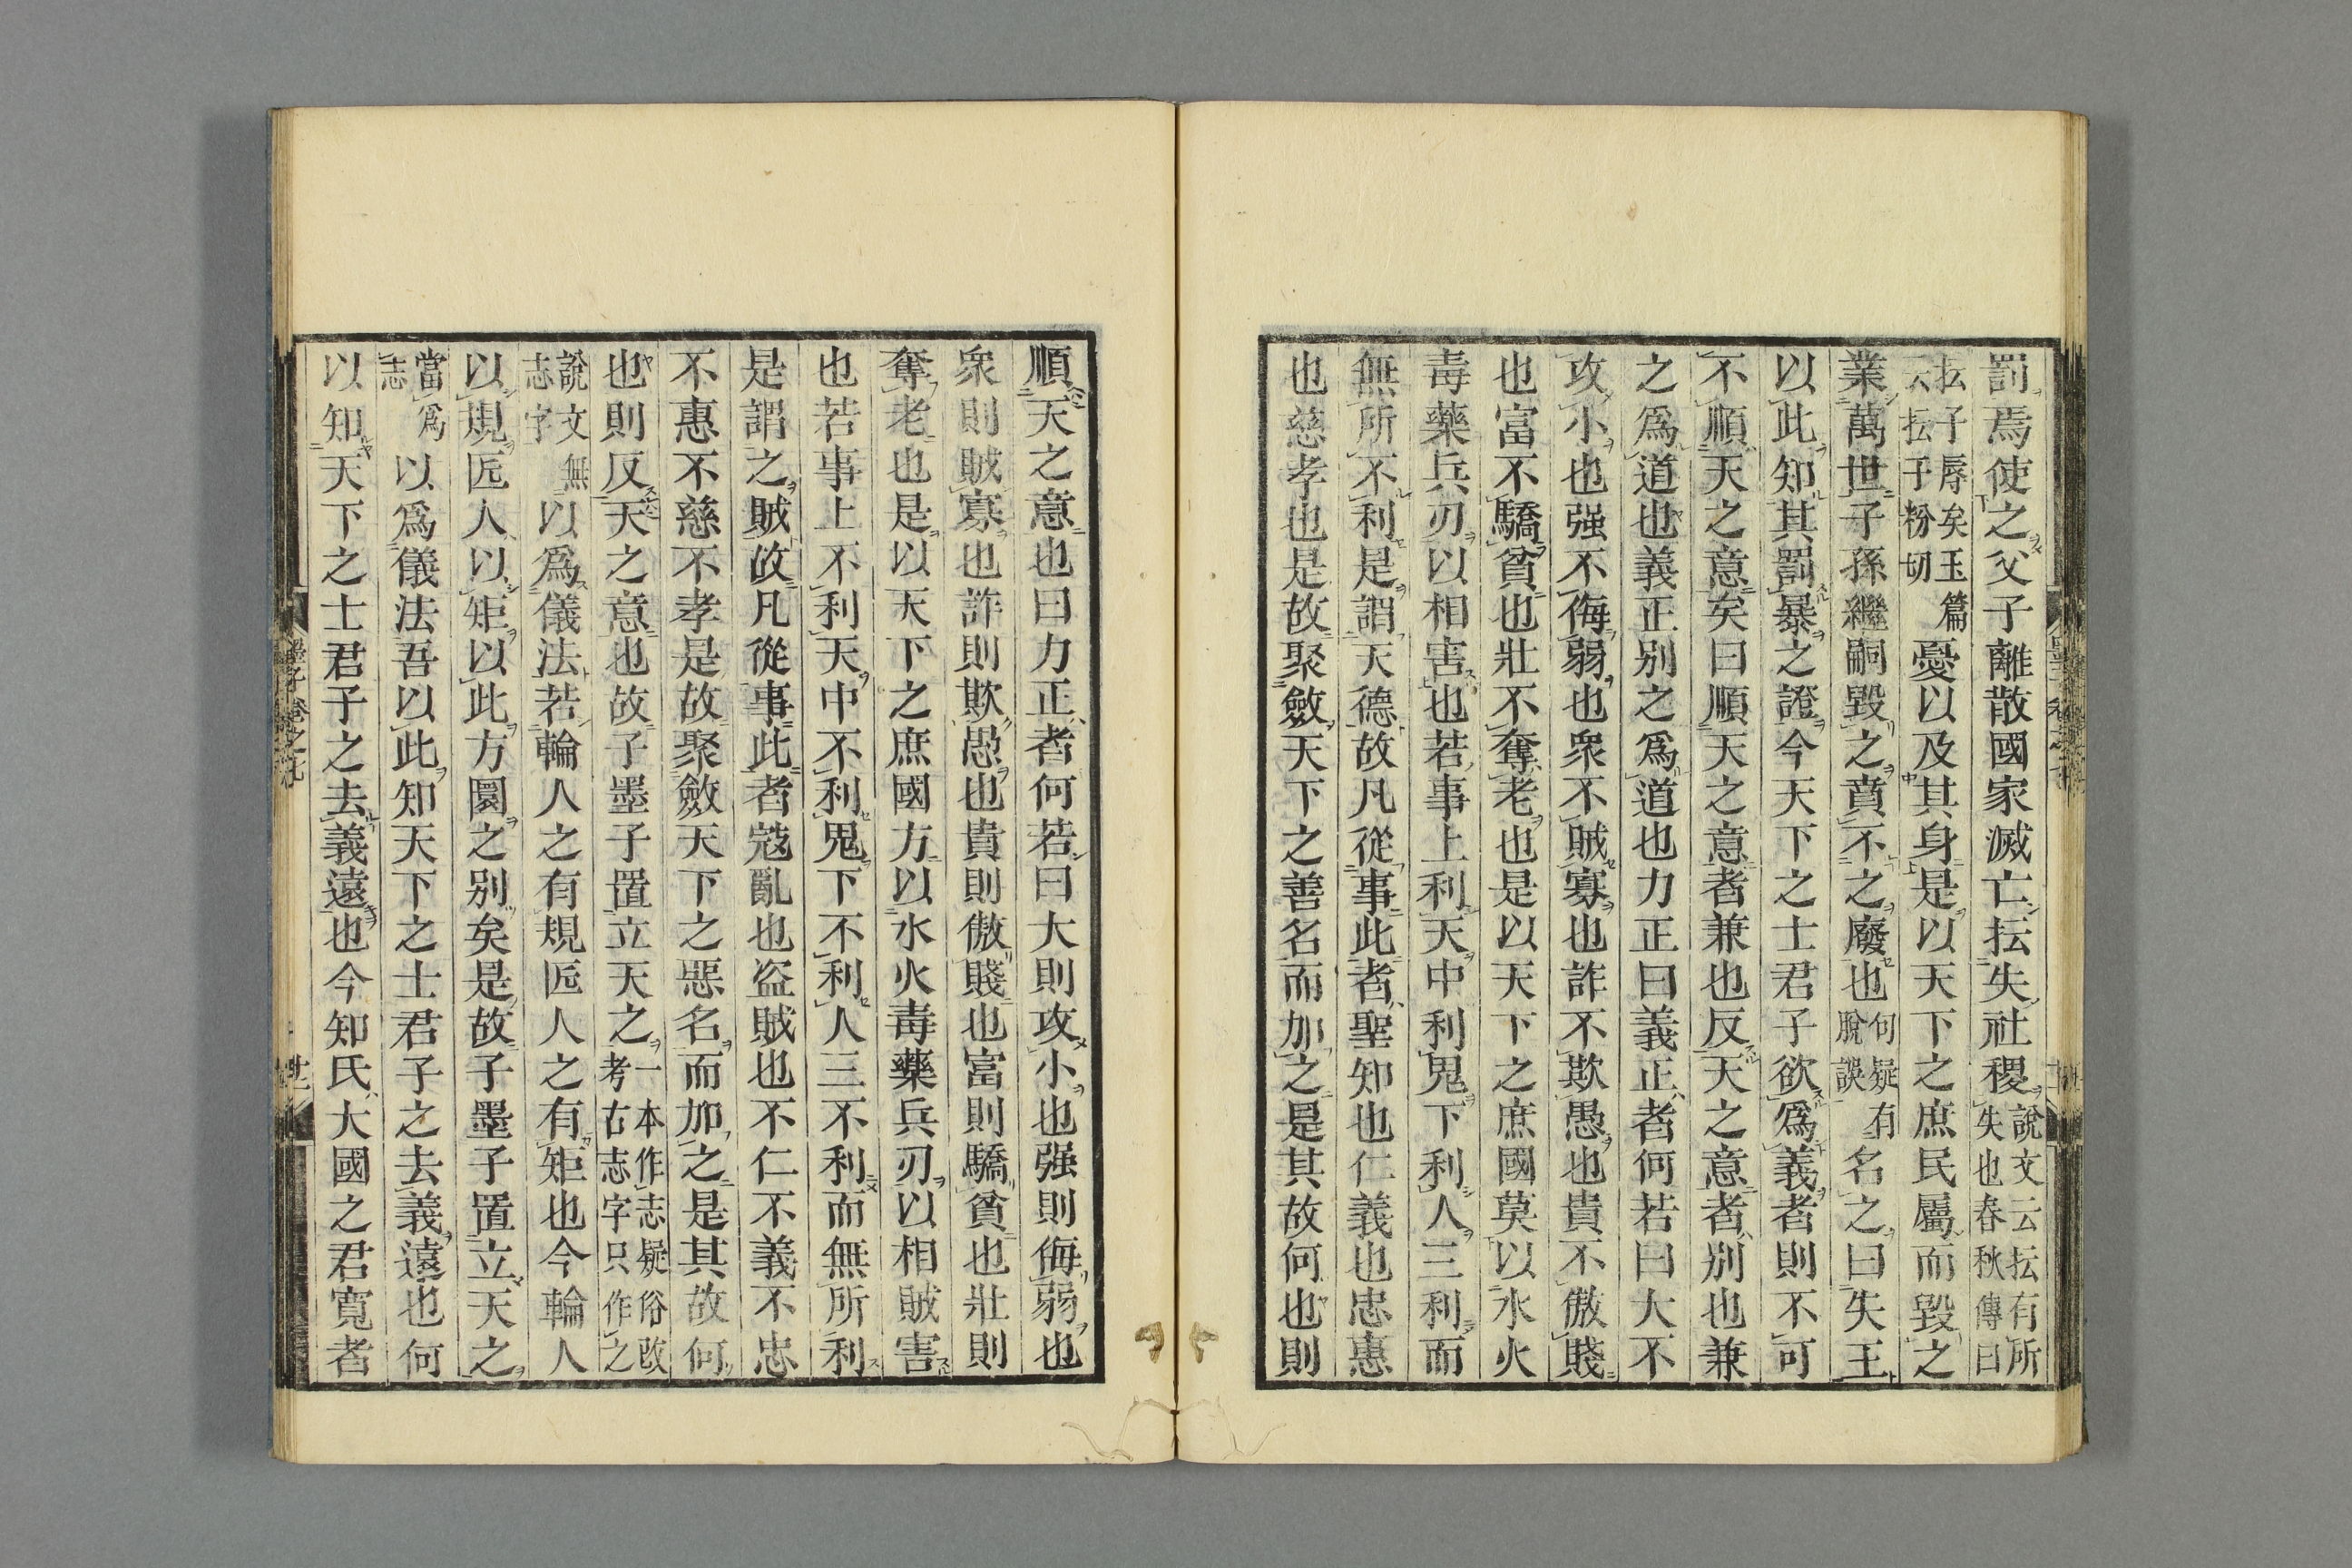 罰焉使之父子離散國家滅亡抎失社稷說文云抎有所失也春秋傳曰
抎子辱矣玉篇云抎于粉切憂以及其身是以天下之庶民屬而毀之
業萬世子孫繼嗣毀之賁不之廢也句疑有脫誤名之曰失王
以此知其罰暴之證今天下之士君子欲爲義者則不可
不順天之意矣曰順天之意者兼也反天之意者别也兼
之爲道也義正别之爲道也力正曰義正者何若曰大不
攻小也强不侮弱也衆不賊寡也詐不欺愚也貴不傲賤
也富不驕貧也壯不奪老也是以天下之庶國莫以水火
毒藥兵刃以相害也若事上利天中利鬼下利人三利而
無所不利是謂天德故凡從事此者聖知也仁義也忠惠
也慈孝也是故聚斂天下之善名而加之是其故何也則
順天之意也曰力正者何若曰大則攻小也强則侮弱也
衆則賊寡也詐則欺愚也貴則傲賤也富則驕貧也壯則
奪老也是以天下之庶國方以水火毒藥兵刃以相賊害
也若事上不利天中不利鬼下不利人三不利而無所利
是謂之賊故凡從事此者寇亂也盜賊也不仁不義不忠
不惠不慈不孝是故聚斂天下之惡名而加之是其故何
也則反天之意也故子墨子置立天之一本作志疑俗改考古志字只作之
說文無志字以爲儀法若輪人之有規匠人之有矩也今輪人
以規匠人以矩以此方圜之别矣是故子墨子置立天之
當爲志以爲儀法吾以此知天下之士君子之去義遠也何
以知天下之士君子之去義遠也今知氏大國之君寬者
墨子卷之七